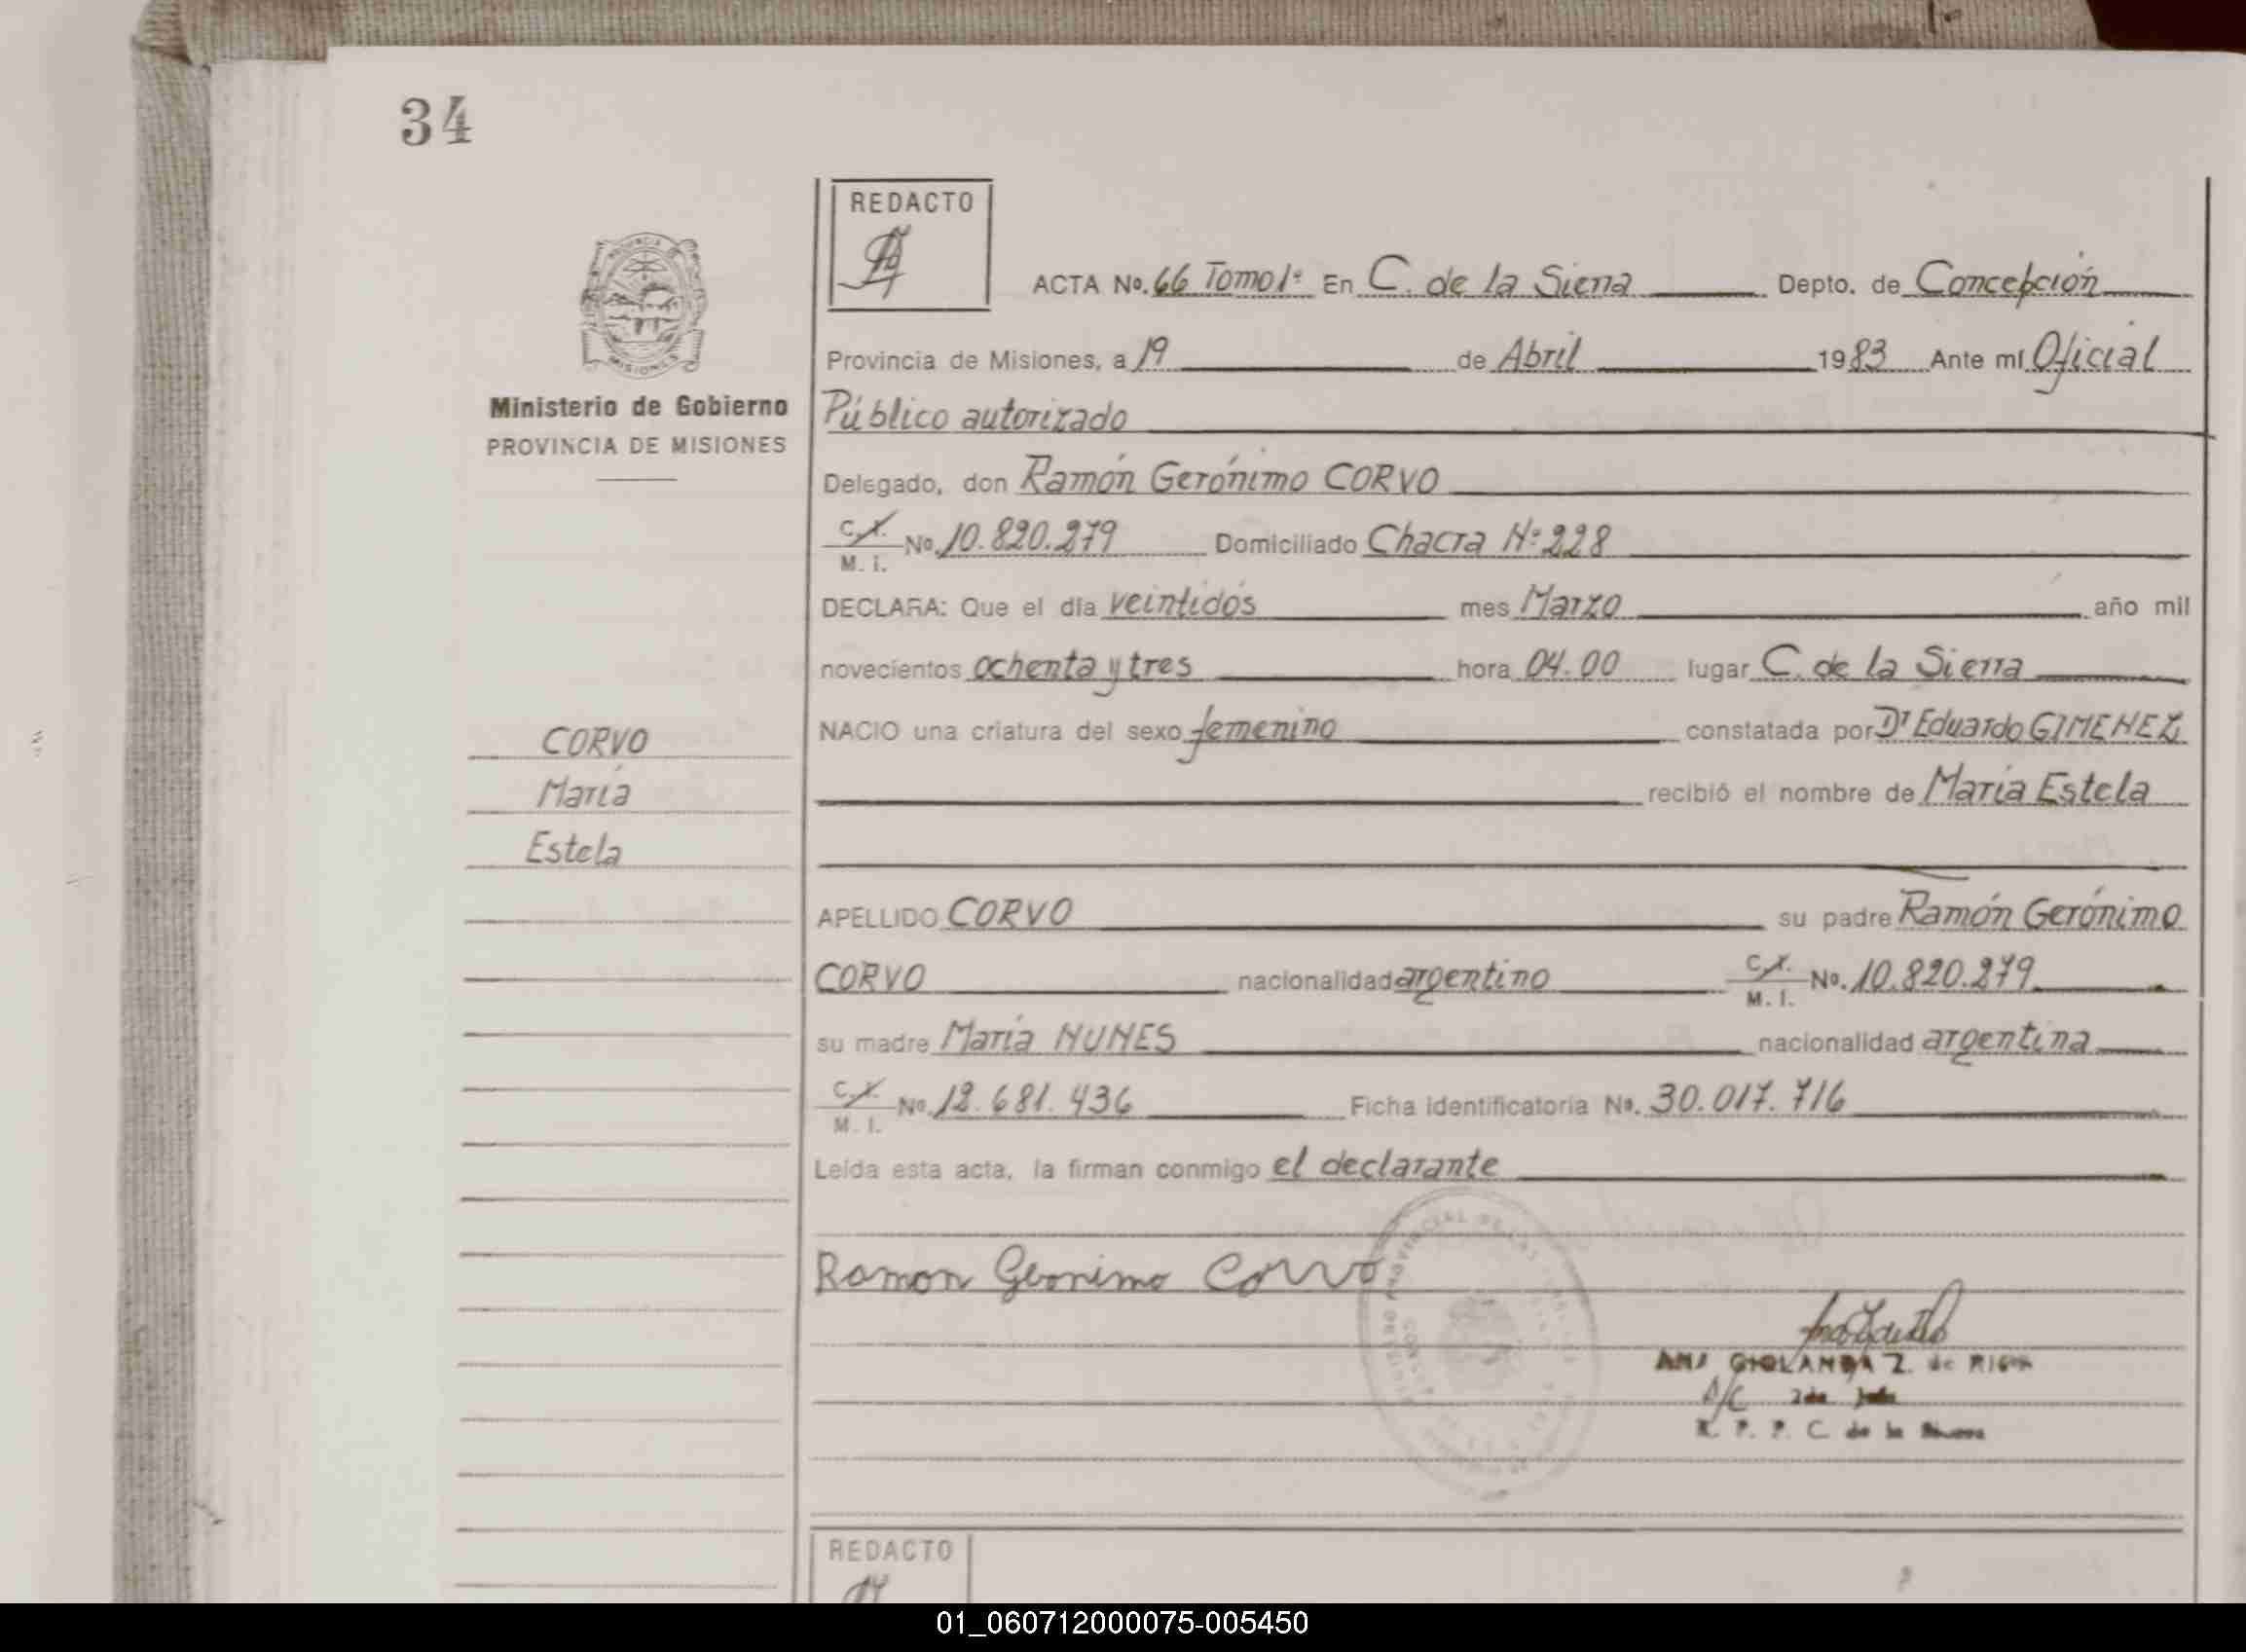 34
REDACTO
PROVINCIA DE
MISIONES
Ministerio de Gobierno
PROVINCIA DE MISIONES
ACTA No. 66 Tomo 1º En C. de la Sierra Depto. de Concepción
Provincia de Misiones, a 19 de Abril 1983 Ante mí Oficial
Público autorizado
Delegado, don Ramón Gerónimo CORVO
C.I. M. I. No. 10.820.279 Domiciliado Chacra Nº 228
DECLARA: Que el día veintidós mes Marzo año mil
novecientos ochenta y tres hora 04.00 lugar C. de la Sierra
NACIO una criatura del sexo femenino constatada por Dr Eduardo GIMENEZ
recibió el nombre de María Estela
CORVO
María
Estela
APELLIDO CORVO su padre Ramón Gerónimo
CORVO nacionalidad argentino C.I. M. I. No. 10.820.279
su madre María NUNES nacionalidad argentina
C.I. M. I. No. 12.681.436 Ficha Identificatoria No. 30.017.716
Leída esta acta, la firman conmigo el declarante
Ramon Geronimo Corvo
GIOLANDA Z. de
A/C 2da
R. P. P. C. de la
REDACTO
01_060712000075-005450